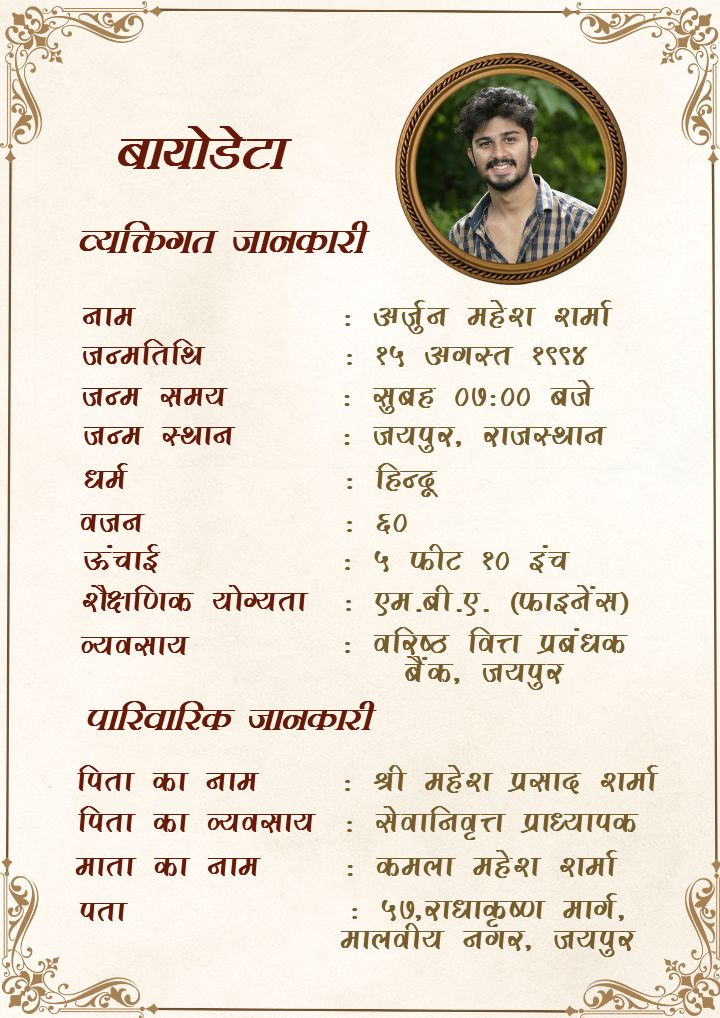 बायोडेटा
व्यक्तिगत जानकारी
नाम : अर्जुन महेश शर्मा
जन्मतिथि : १५ अगस्त १९९४
जन्म समय : सुबह ०७:०० बजे
जन्म स्थान : जयपुर, राजस्थान
धर्म : हिन्दू
वजन : ६०
ऊंचाई : ५ फीट १० इंच
शैक्षणिक योग्यता : एम.बी.ए. (फाइनेंस)
व्यवसाय : वरिष्ठ वित्त प्रबंधक
बैंक, जयपुर
पारिवारिक जानकारी
पिता का नाम : श्री महेश प्रसाद शर्मा
पिता का व्यवसाय : सेवानिवृत्त प्राध्यापक
माता का नाम : कमला महेश शर्मा
पता : ५७,राधाकृष्ण मार्ग,
मालवीय नगर, जयपुर